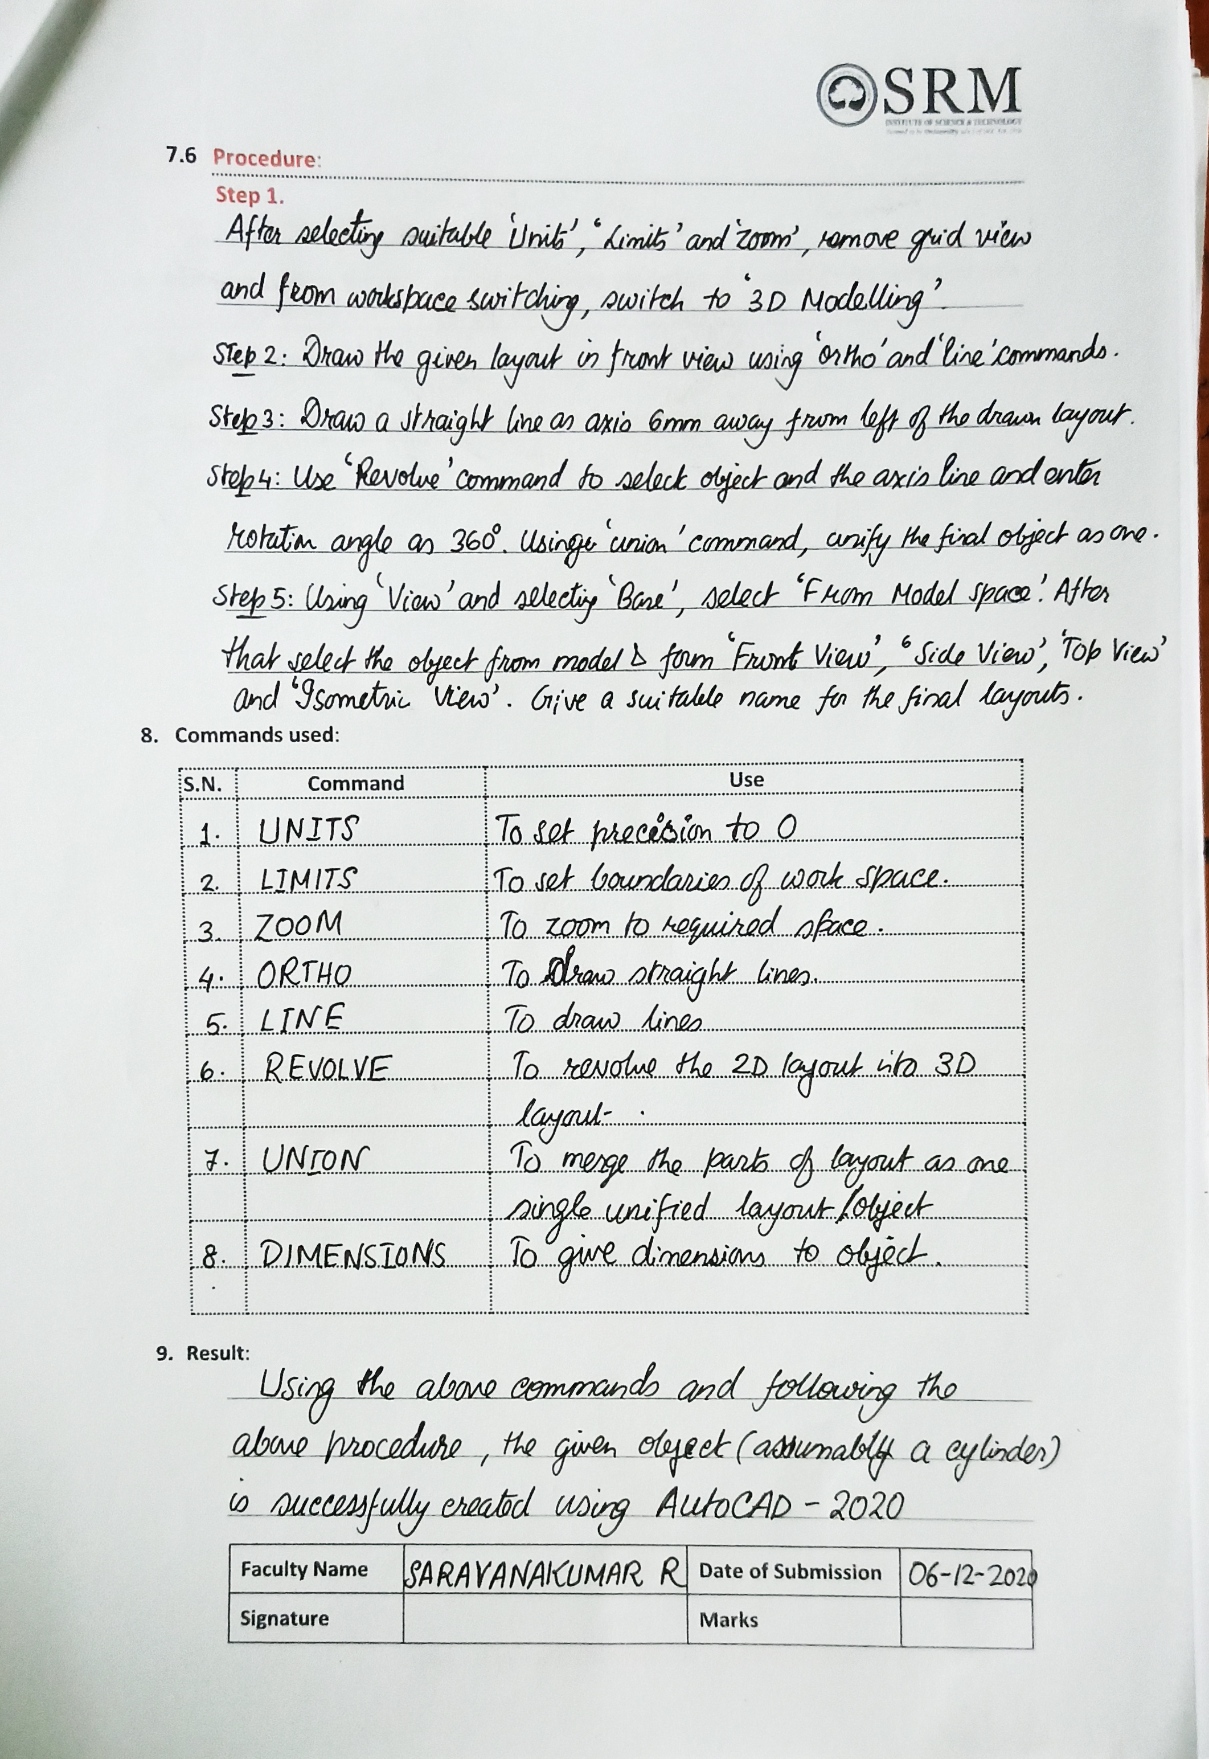 SRM
INSTITUTE OF SCIENCE & TECHNOLOGY
7.6 Procedure:
Step 1.
After selecting suitable 'Units', 'Limits' and 'zoom', remove grid view
and from workspace switching, switch to '3D Modelling'.
Step 2: Draw the given layout in front view using 'ortho' and 'line' commands.
Step 3: Draw a straight line as axis 6mm away from left of the drawn layout.
Step 4: Use 'Revolve' command to select object and the axis line and enter
rotation angle as 360°. Using 'union' command, unify the final object as one.
Step 5: Using 'View' and selecting 'Base', select 'From Model space'. After
that select the object from model & form 'Front View', 'Side View', 'Top View'
and 'Isometric View'. Give a suitable name for the final layouts.
8. Commands used:
S.N. Command Use
1. UNITS To set precision to 0
2. LIMITS To set boundaries of work space.
3. ZOOM To zoom to required space.
4. ORTHO To Draw straight lines.
5. LINE To draw lines
6. REVOLVE To revolve the 2D layout into 3D
layout.
7. UNION To merge the parts of layout as one
single unified layout/object
8. DIMENSIONS To give dimensions to object.
9. Result:
Using the above commands and following the
above procedure, the given object (assumably a cylinder)
is successfully created using AutoCAD - 2020
Faculty Name SARAVANAKUMAR R Date of Submission 06-12-2020
Signature Marks